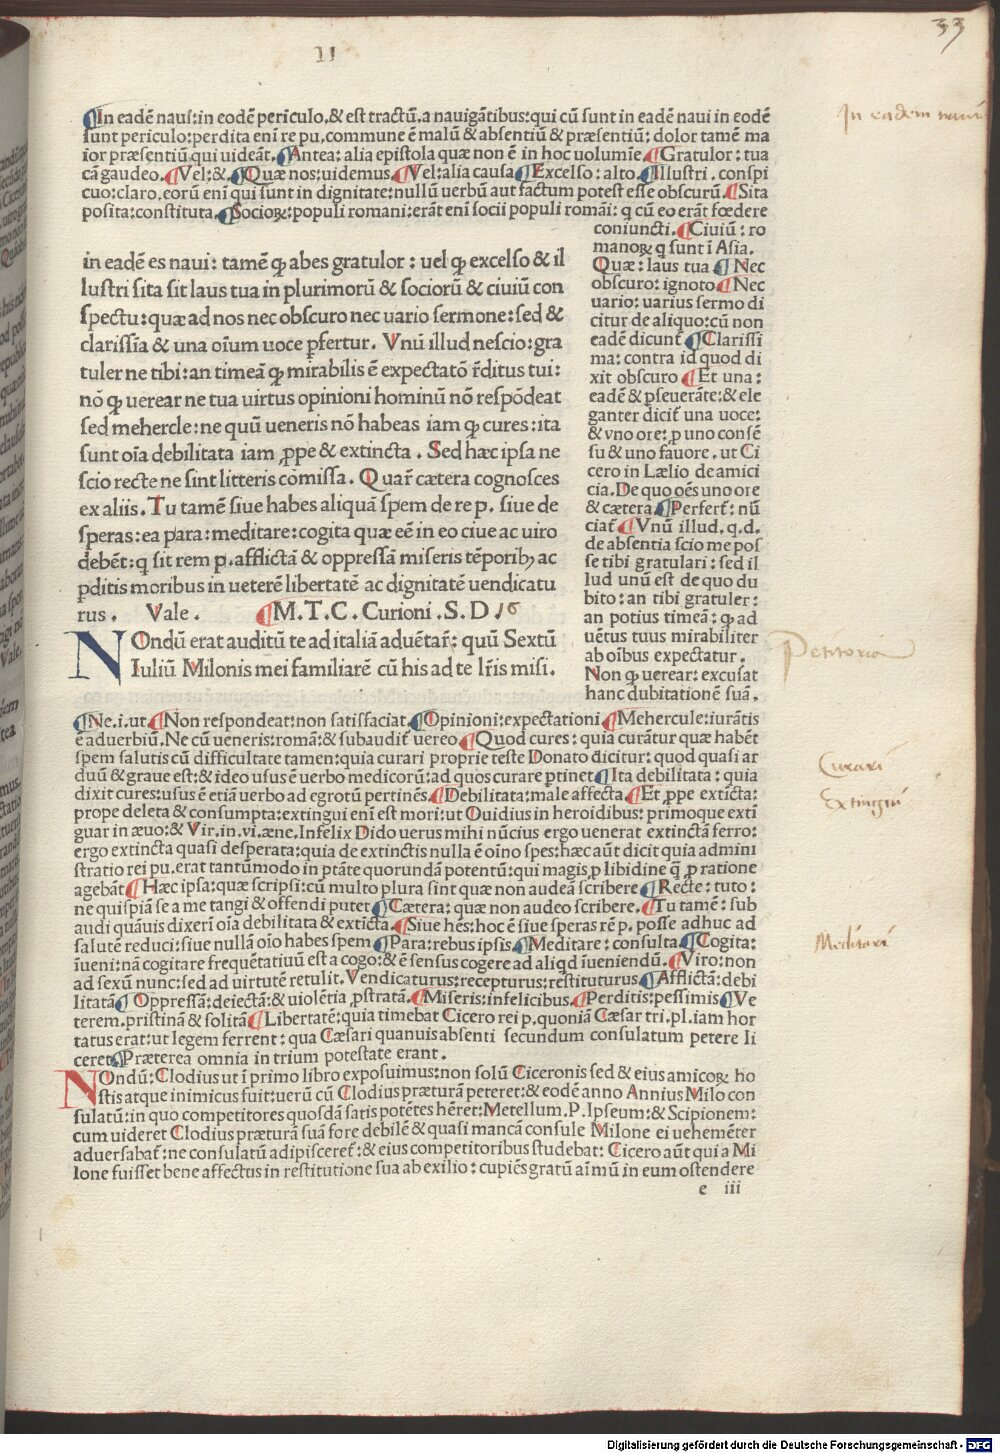 II
33
¶In eadē naui:in eodē periculo,& est tractū.a nauigātibus:qui cū sunt in eadē naui in eodē
In eadem naui
sunt periculo:perdita enī re pu.commune ē malū & absentiū & præsentiū: dolor tamē ma
ior præsentiū qui uideāt.¶Antea: alia epistola quæ non ē in hoc uolumie ¶Gratulor: tua
cā gaudeo.¶Vel:&.¶Quæ nos:uidemus.¶Vel:alia causa¶Excelso: alto.¶Illustri. conspi
cuo:claro.eorū enī qui sunt in dignitate:nullū uerbū aut factum potest esse obscurū.¶Sita
posita:constituta.¶Socioꝝ:populi romani:erāt enī socii populi romāi: q cū eo erāt fœdere
coniuncti.¶Ciuiū: ro
manoꝝ q sunt ī Asia.
Quæ: laus tua ¶ Nec
obscuro: ignoto¶Nec
uario: uarius sermo di
citur de aliquo:cū non
eadē dicunt̄ ¶Clarissi
ma: contra id quod di
xit obscuro ¶Et una:
eadē & pseuerāte:& ele
ganter dicit̄ una uoce:
& vno ore: p uno consē
su & uno fauore. ut Ci
cero in Lælio de amici
cia.De quo oēs uno ore
& cætera.¶Perfert̄: nū
ciat̄ ¶Vnū illud. q.d.
de absentia scio me pos
se tibi gratulari: sed il
lud unū est de quo du
bito: an tibi gratuler:
an potius timeā: ꝙ ad
uētus tuus mirabiliter
ab oībus expectatur.
Non ꝙ uerear: excusat
hanc dubitationē suā.
in eadē es naui: tamē ꝙ abes gratulor: uel ꝙ excelso & il
lustri sita sit laus tua in plurimorū & sociorū & ciuiū con
spectu:quæ ad nos nec obscuro nec uario sermone:sed &
clarissīa & una oīum uoce pfertur. Vnū illud nescio:gra
tuler ne tibi:an timeā ꝙ mirabilis ē expectatō r̄ditus tui:
nō ꝙ uerear ne tua uirtus opinioni hominū nō respōdeat
sed mehercle:ne quū ueneris nō habeas iam ꝙ cures:ita
sunt oīa debilitata iam ꝓpe & extincta. Sed hæc ipsa ne
scio recte ne sint litteris cōmissa. Quar̄ cætera cognosces
ex aliis. Tu tamē siue habes aliquā spem de re p. siue de
speras:ea para:meditare:cogita quæ eē in eo ciue ac uiro
debēt:q sit rem p.afflictā & oppressā miseris tēporibꝫ ac
pditis moribus in ueterē libertatē ac dignitatē uendicatu
rus. Vale. ¶M.T.C.Curioni.S.D 16
NOndū erat auditū te ad italiā aduētar̄: quū Sextū
Iuliū Milonis mei familiarē cū his ad te lr̄is misi.
Petitoria
¶Ne.i.ut.¶Non respondeat:non satisfaciat.¶Opinioni:expectationi ¶Mehercule:iurātis
ē aduerbiū.Ne cū ueneris:romā:& subaudit̄ uereo ¶Quod cures: quia curātur quæ habēt
spem salutis cū difficultate tamen:quia curari proprie teste Donato dicitur: quod quasi ar
Curari
duū & graue est:& ideo usus ē uerbo medicorū:ad quos curare ptinet¶Ita debilitata: quia
dixit cures:usus ē etiā uerbo ad egrotū pertinēs.¶Debilitata:male affecta.¶Et ꝓpe extīcta:
Extingui
prope deleta & consumpta:extingui enī est mori:ut Ouidius in heroidibus: primoque exti
guar in æuo:& Vir.in.vi.æne.Infelix Dido uerus mihi nūcius ergo uenerat extinctā ferro:
ergo extincta quasi desperata:quia de extinctis nulla ē oīno spes:hæc aūt dicit quia admini
stratio rei pu.erat tantūmodo in ptāte quorundā potentū:qui magis p libidine q̄ p ratione
agebāt¶Hæc ipsa:quæ scripsi:cū multo plura sint quæ non audeā scribere¶Recte: tuto:
ne quispiā se a me tangi & offendi putet¶Cætera: quæ non audeo scribere.¶Tu tamē: sub
audi quāuis dixerī oīa debilitata & extīcta.¶Siue hēs:hoc ē siue speras rē p. posse adhuc ad
salutē reduci:siue nullā oīo habes spem¶Para:rebus ipsis.¶Meditare: consulta.¶Cogita:
Meditari
iueni:nā cogitare frequētatiuū est a cogo:& ē sensus cogere ad aliqd iueniendū.¶Viro:non
ad sexū nunc:sed ad uirtutē retulit. Vendicaturus:recepturus:restituturus¶Afflictā:debi
litatā¶Oppressā:deiectā:& uiolētia pstratā.¶Miseris:infelicibus.¶Perditis:pessimis¶Ve
terem.pristinā & solitā¶Libertatē:quia timebat Cicero rei p.quoniā Cæsar tri.pl.iam hor
tatus erat:ut legem ferrent: qua Cæsari quanuis absenti secundum consulatum petere li
ceret¶Præterea omnia in trium potestate erant.
NOndū: Clodius ut ī primo libro exposuimus:non solū Ciceronis sed & eius amicoꝝ ho
stis atque inimicus fuit:uerū cū Clodius præturā peteret:& eodē anno Annius Milo con
sulatū:in quo competitores quosdā satis potētes hēret:Metellum.P.Ipseum:& Scipionem:
cum uideret Clodius præturā suā fore debilē & quasi mancā consule Milone ei uehemēter
aduersabat̄:ne consulatū adipisceret̄:& eius competitoribus studebat: Cicero aūt qui a Mi
lone fuisset bene affectus in restitutione sua ab exilio: cupiēs gratū aīmū in eum ostendere
e iii
Digitalisierung gefördert durch die Deutsche Forschungsgemeinschaft - DFG